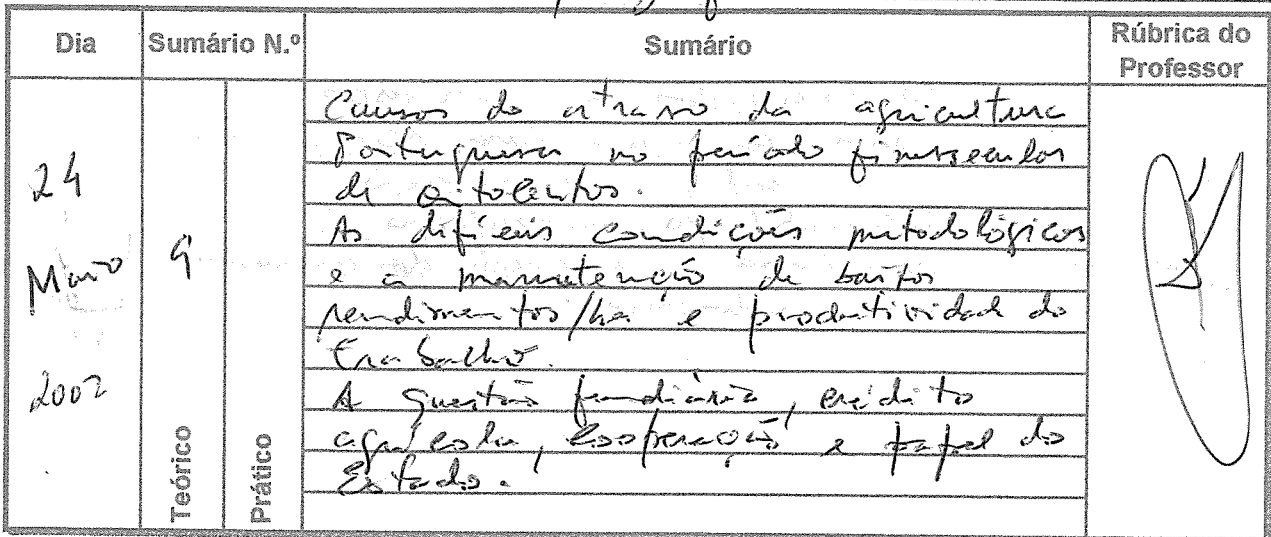 Dia
Sumário N.º
Sumário
Rúbrica do
Professor
24
Maio
2002
9
Teórico
Prático
Causas do atraso da agricultura
Portuguesa no período finissecular
de oitocentos.
As difíceis condições metodológicas
e a manutenção de baixos
rendimentos/ha e produtividade do
trabalho.
A questão fundiária, crédito
agrícola, cooperação e papel do
Estado.